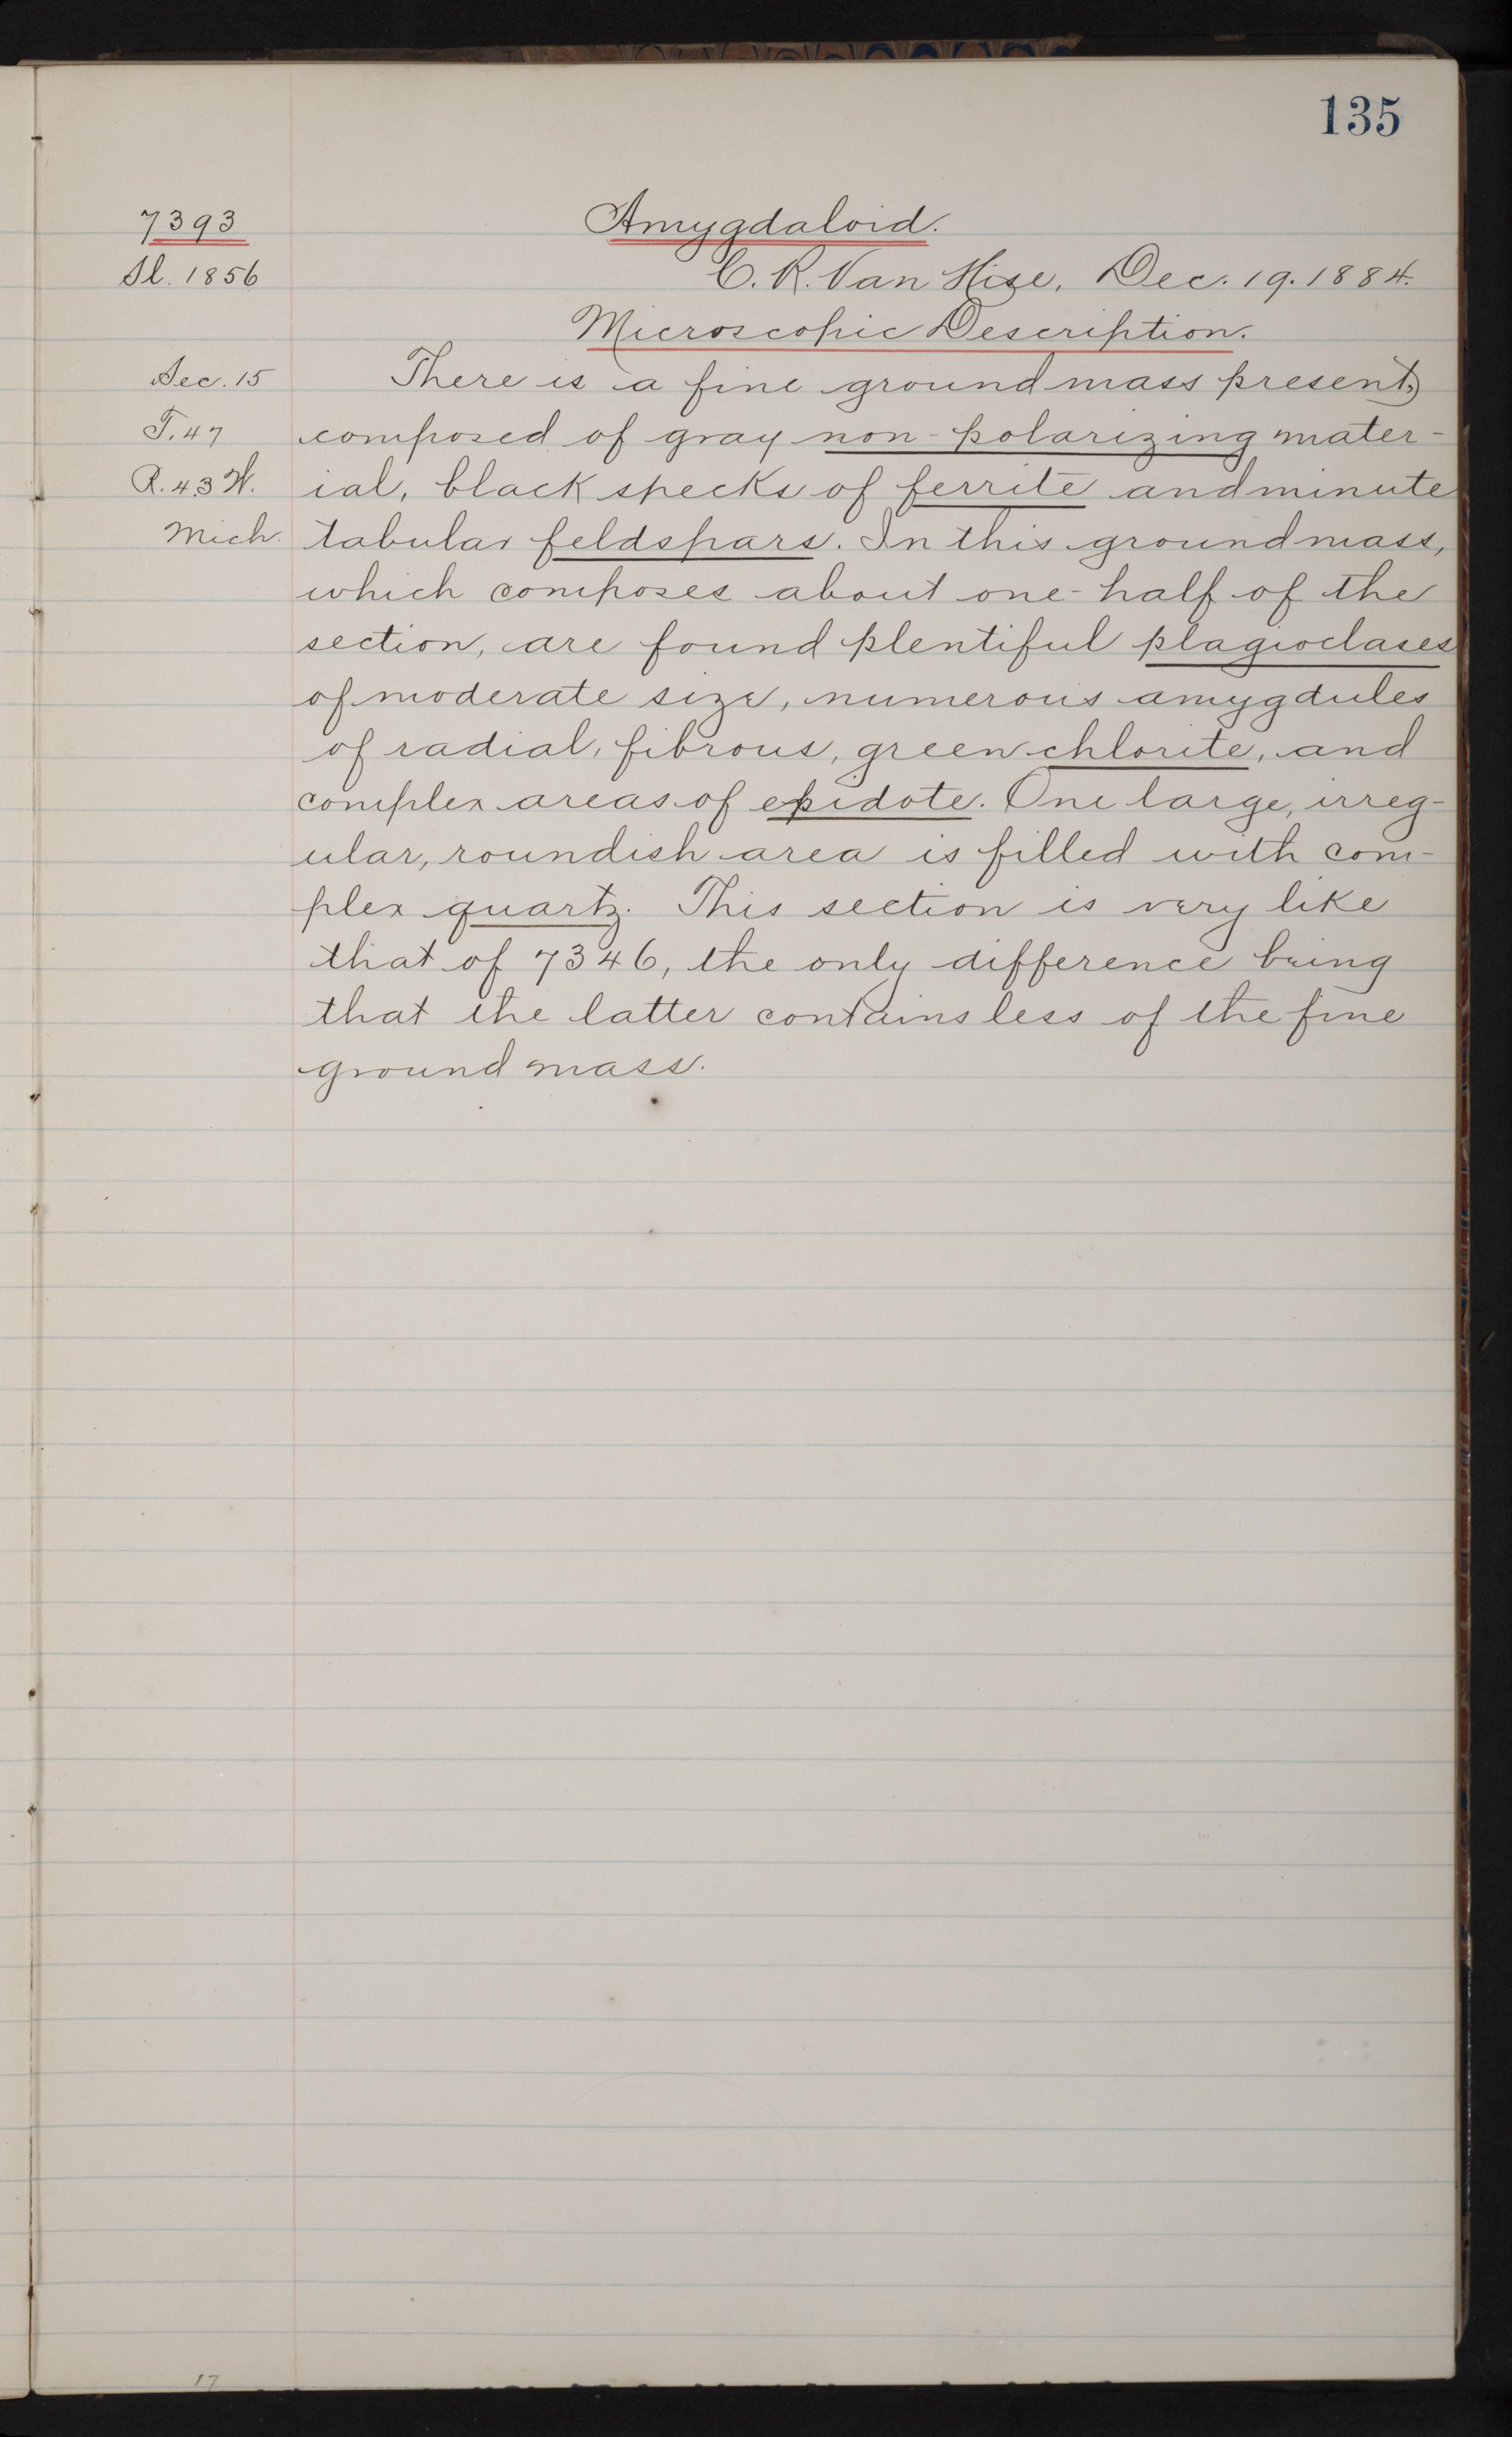 135
7393
Amygdaloid.
Sl. 1856
C. R. Van Hise, Dec. 19. 1884.
Microscopic Description.
Sec. 15
T. 47
R. 43 W.
Mich.
There is a fine groundmass present,
composed of gray non-polarizing mater-
ial, black specks of ferrite and minute
tabular feldspars. In this groundmass,
which composes about one-half of the
section, are found plentiful plagioclases
of moderate size, numerous amygdules
of radial, fibrous, green chlorite, and
complex areas of epidote. One large, irreg-
ular, roundish area is filled with com-
plex quartz. This section is very like
that of 7346, the only difference being
that the latter contains less of the fine
ground mass.
17